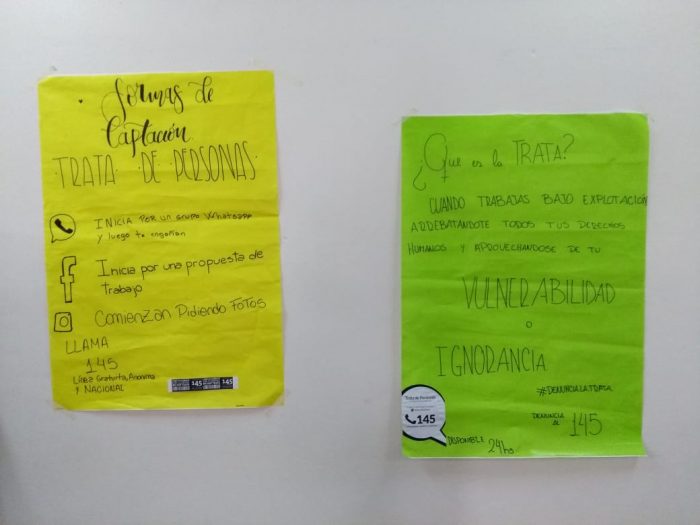 Formas de
Captación
TRATA DE PERSONAS
INICIA POR UN GRUPO Whatsapp
y luego te engañan
Inicia por una propuesta de
trabajo
Comienzan Pidiendo FOTOS
LLAMA
145
Línea Gratuita, Anonima
Y NACIONAL
145
145
¿Que es la TRATA?
CUANDO TRABAJAS BAJO EXPLOTACIÓN
ARREBATANDOTE TODOS TUS DERECHOS
HUMANOS Y APROVECHANDOSE DE TU
VULNERABILIDAD
O
IGNORANCIA
#DENUNCIALATRATA
DENUNCIA
AL 145
Trata de Personas
145
DISPONIBLE 24hs.